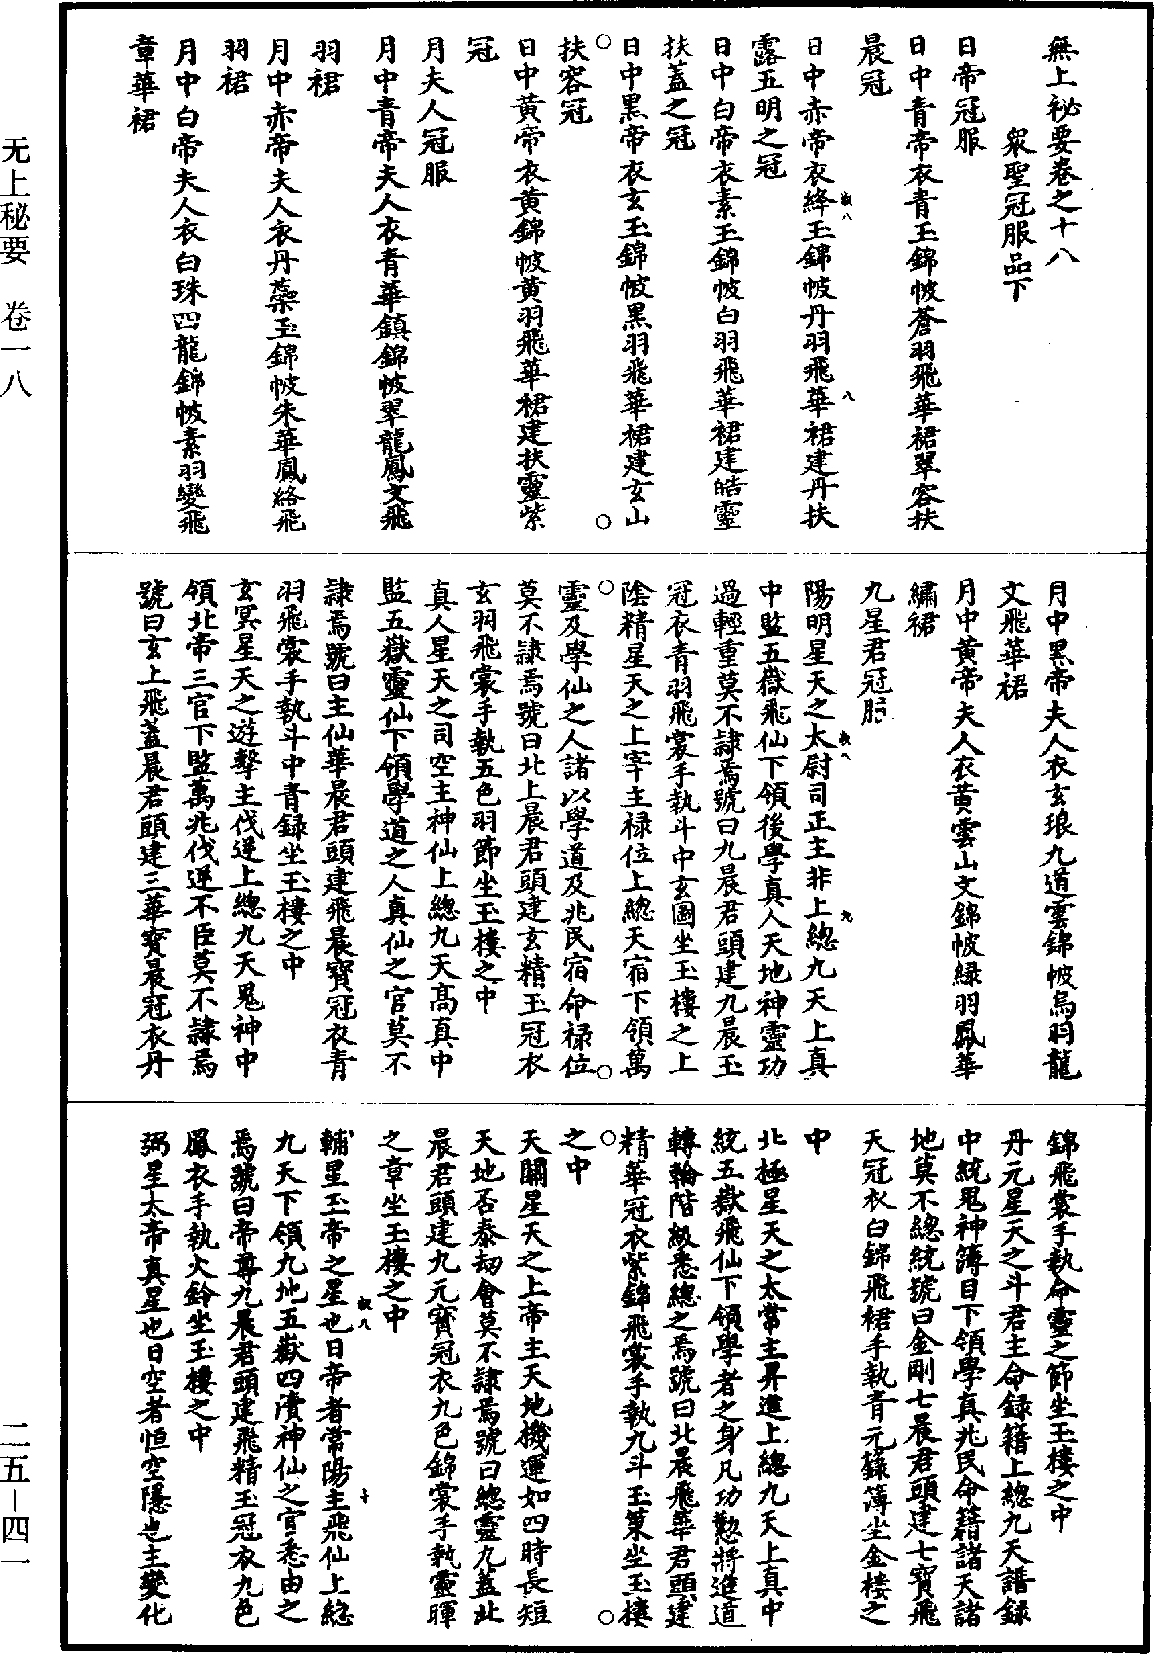 無上祕要卷之十八
眾聖冠服品下
日帝冠服
日中青帝衣青玉錦帔蒼羽飛華裙翠容扶
晨冠
日中赤帝衣絳玉錦帔丹羽飛華裙建丹扶
露五明之冠
日中白帝衣素玉錦帔白羽飛華裙建皓靈
扶蓋之冠
日中黑帝衣玄玉錦帔黑羽飛華裙建玄山
扶容冠
日中黃帝衣黃錦帔黃羽飛華裙建扶靈紫
冠
月夫人冠服
月中青帝夫人衣青華鎮錦帔翠龍鳳文飛
羽裙
月中赤帝夫人衣丹蘂玉錦帔朱華鳳絡飛
羽裙
月中白帝夫人衣白珠四龍錦帔素羽變飛
章華裙
月中黑帝夫人衣玄琅九道雲錦帔烏羽龍
文飛華裙
月中黃帝夫人衣黃雲山文錦帔緑羽鳳華
繡裙
九星君冠服
陽明星天之太尉司正主非上總九天上真
中監五嶽飛仙下領後學真人天地神靈功
過輕重莫不隸焉號曰九晨君頭建九晨玉
冠衣青羽飛裳手執斗中玄圖坐玉樓之上
陰精星天之上宰主祿位上總天宿下領萬
靈及學仙之人諸以學道及兆民宿命祿位
莫不隸焉號曰北上晨君頭建玄精玉冠衣
玄羽飛裳手執五色羽節坐玉樓之中
真人星天之司空主神仙上總九天高真中
監五嶽靈仙下領學道之人真仙之官莫不
隸焉號曰主仙華晨君頭建飛晨寶冠衣青
羽飛裳手執斗中青録坐玉樓之中
玄冥星天之遊擊主伐逆上總九天鬼神中
領北帝三官下監萬兆伐逆不臣莫不隸焉
號曰玄上飛蓋晨君頭建三華寶晨冠衣丹
錦飛裳手執命靈之節坐玉樓之中
丹元星天之斗君主命録籍上總九天譜録
中統鬼神簿目下領學真兆民命籍諸天諸
地莫不總統號曰金剛七晨君頭建七寶飛
天冠衣白錦飛裙手執青元籙簿坐金樓之
中
北極星天之太常主昇進上總九天上真中
統五嶽飛仙下領學者之身凡功懃將進道
轉輪階級悉總之焉號曰北晨飛華君頭建
精華冠衣紫錦飛裳手執九斗玉策坐玉樓
之中
天關星天之上帝主天地機運如四時長短
天地否泰劫會莫不隸焉號曰總靈九蓋此
晨君頭建九元寶冠衣九色錦裳手執靈暉
之章坐玉樓之中
輔星玉帝之星也曰帝者常陽主飛仙上總
九天下領九地五嶽四瀆神仙之官悉由之
焉號曰帝尊九晨君頭建飛精玉冠衣九色
鳳衣手執火鈴坐玉樓之中
弼星太帝真星也曰空者恒空隱也主變化
无上秘要　卷一八
二五－四一